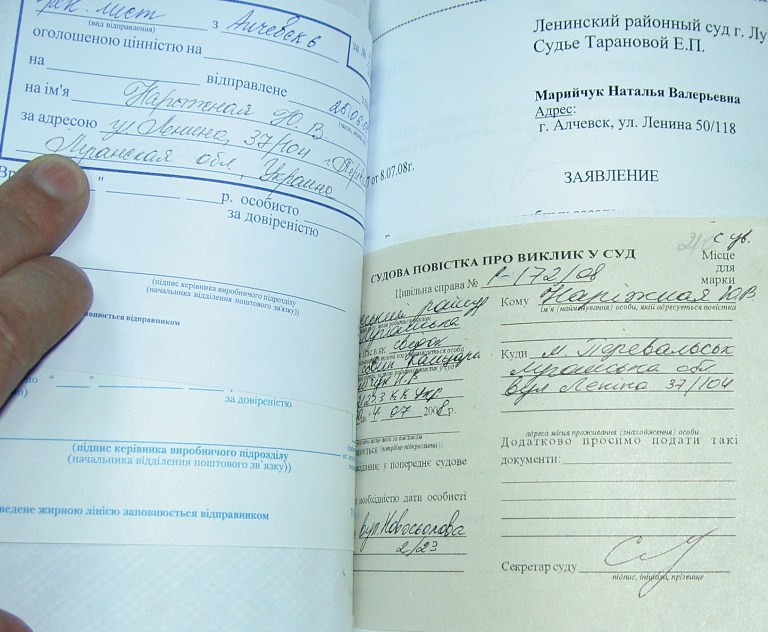 лист з Алчевск 6
(вид відправлення)
оголошеною цінністю на
на відправлене
на ім'я Нарожная Ю. В.
за адресою ул Ленина, 37/104
Луганская обл, Украина
" " р. особисто
за довіреністю
(підпис керівника виробничого підрозділу
(начальника відділення поштового зв'язку))
внюється відправником
" " за довіреністю
(підпис керівника виробничого підрозділу
(начальника відділення поштового зв'язку))
ведене жирною лінією заповнюється відправником
Ленинский районный суд г. Лу
Судье Тарановой Е.П.
Марийчук Наталья Валерьевна
Адрес:
г. Алчевск, ул. Ленина 50/118
от 8.07.08г.
ЗАЯВЛЕНИЕ
СУДОВА ПОВІСТКА ПРО ВИКЛИК У СУД
Місце
для
марки
Цивільна справа № Р-172/08
Кому Наріжная Ю.В
ім'я (найменування) особи, якій адресується повістка
Куди м. Перевальськ
Луганська обл
вул Леніна 37/104
адреса місця проживання (знаходження) особи
Додатково просимо подати такі
документи:
свідок
07 2008 р.
у попереднє судове
необхідністю дати особисті
вул.Новосьолова
2/23
Секретар суду
підпис, ініціали, прізвище